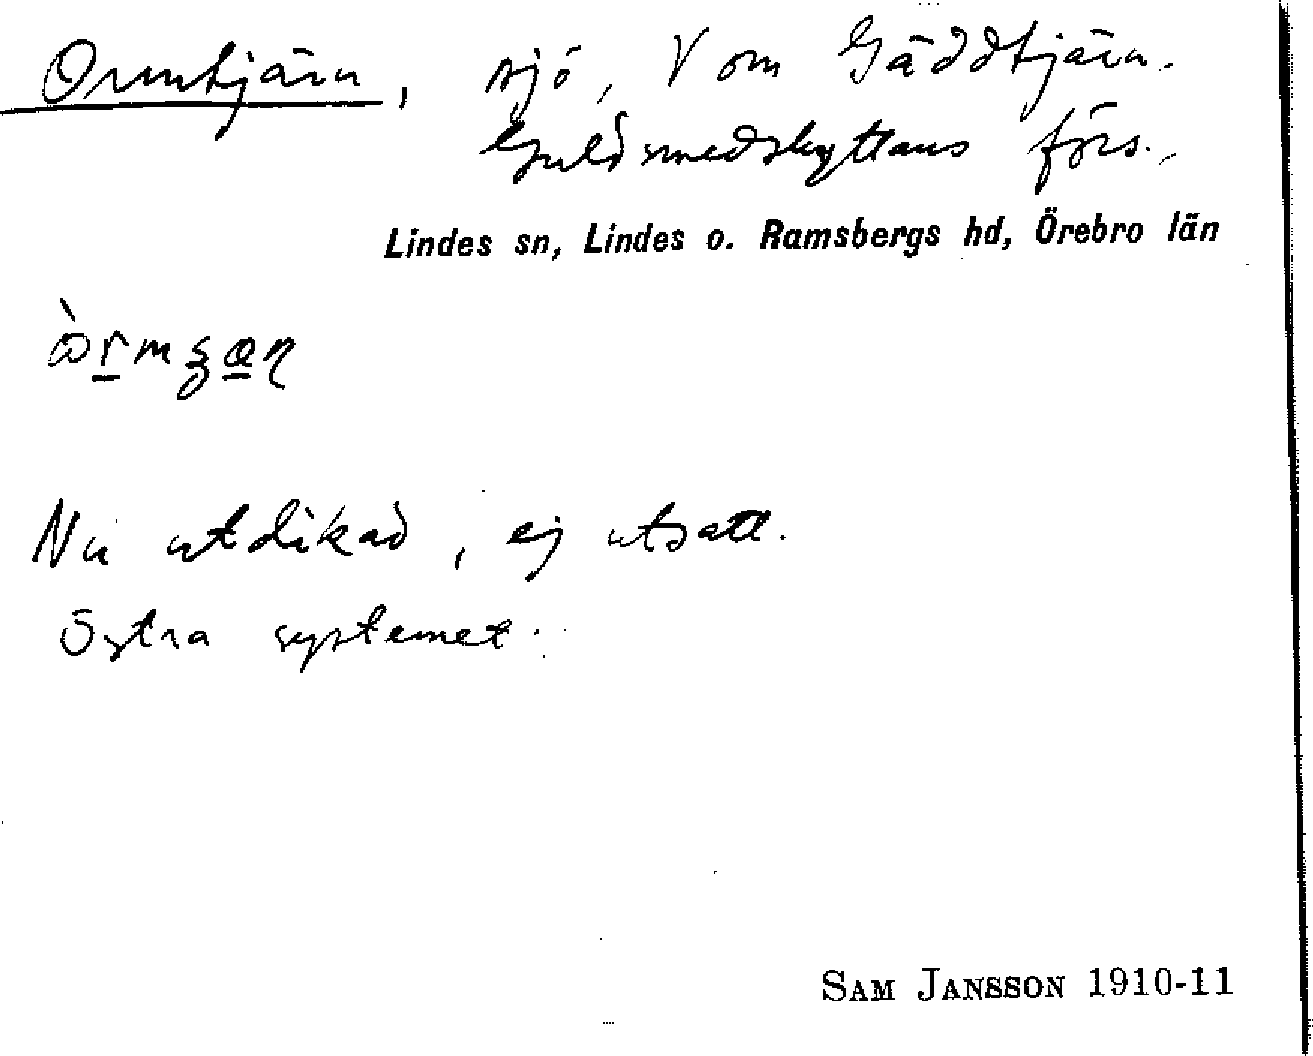 Ormtjärn, sjö, V om Gäddtjärn.
Guldsmedshyttans förs.,
Lindes sn, Lindes o. Ramsbergs hd, Örebro län
Nu utdikad, ej utsatt.
Östra systemet.
SAM JANSSON 1910-11